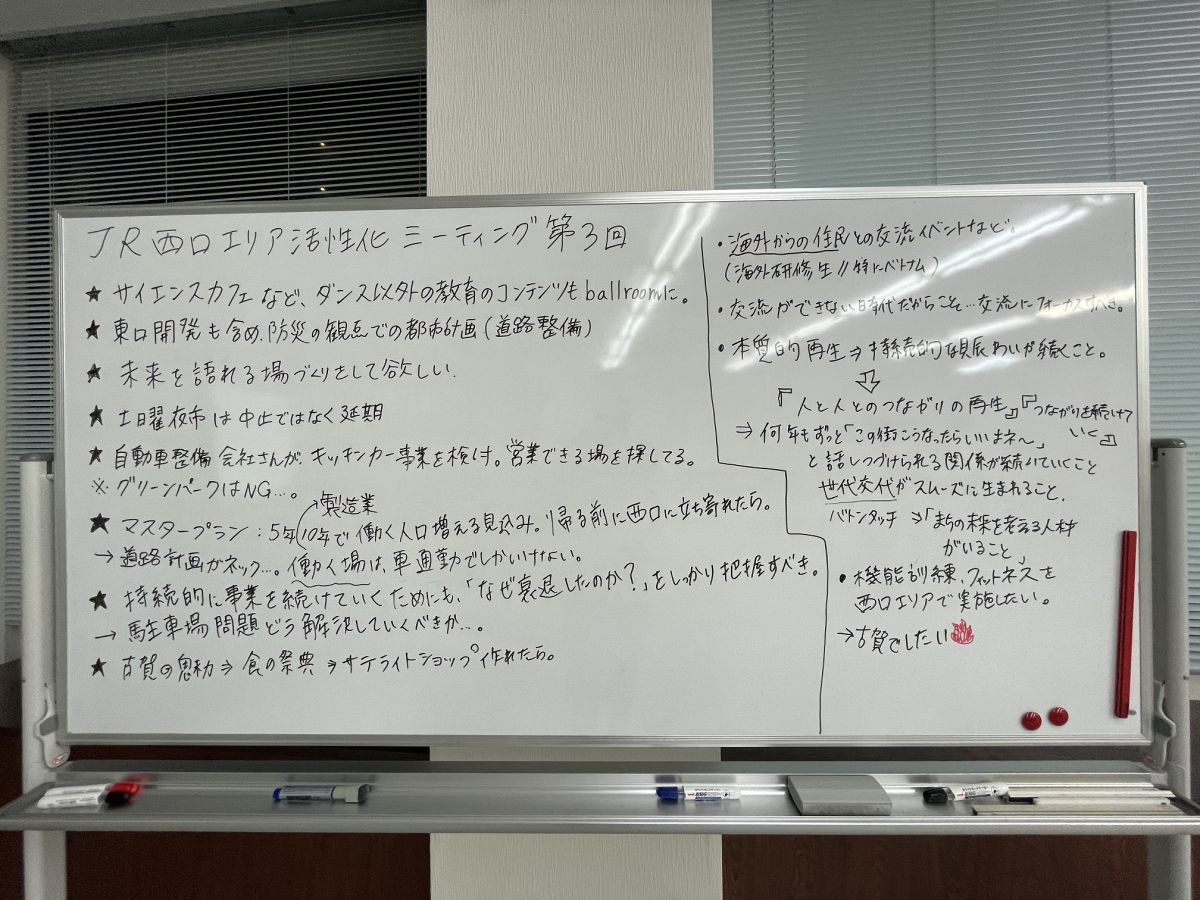 JR西口エリア活性化ミーティング第3回
★ サイエンスカフェなど、ダンス以外の教育のコンテンツもballroomに。
★ 東口開発も含め、防災の観点での都市計画(道路整備)
★ 未来を語れる場づくりをして欲しい。
★ 土曜夜市は中止ではなく延期
★ 自動車整備会社さんが、キッチンカー事業を検討。営業できる場を探してる。
※グリーンパークはNG…。
→製造業
★ マスタープラン:5年10年で働く人口増える見込み。帰る前に西口に立ち寄れたら。
→道路計画がネック…。働く場は、車通勤でしかいけない。
★ 持続的に事業を続けていくためにも、「なぜ衰退したのか?」をしっかり把握すべき。
→ 駐車場問題どう解決していくべきか…。
★ 古賀の魅力⇒食の祭典⇒サテライトショップ作れたら。
・海外からの住民との交流イベントなど。
(海外研修生〃特にベトナム)
・交流ができない時代だからこそ…交流にフォーカスすべき。
・本質的再生⇒持続的な賑わいが続くこと。
⇩
『人と人とのつながりの再生』『つながりを続けて
いく』
⇒何年もずっと「この街こうなったらいいよネ〜」
と話しつづけられる関係が続いていくこと
世代交代がスムーズに生まれること。
バトンタッチ ⇒「まちの未来を考える人材
がいること」
・機能訓練、フィットネスを
西口エリアで実施したい。
→古賀でしたい